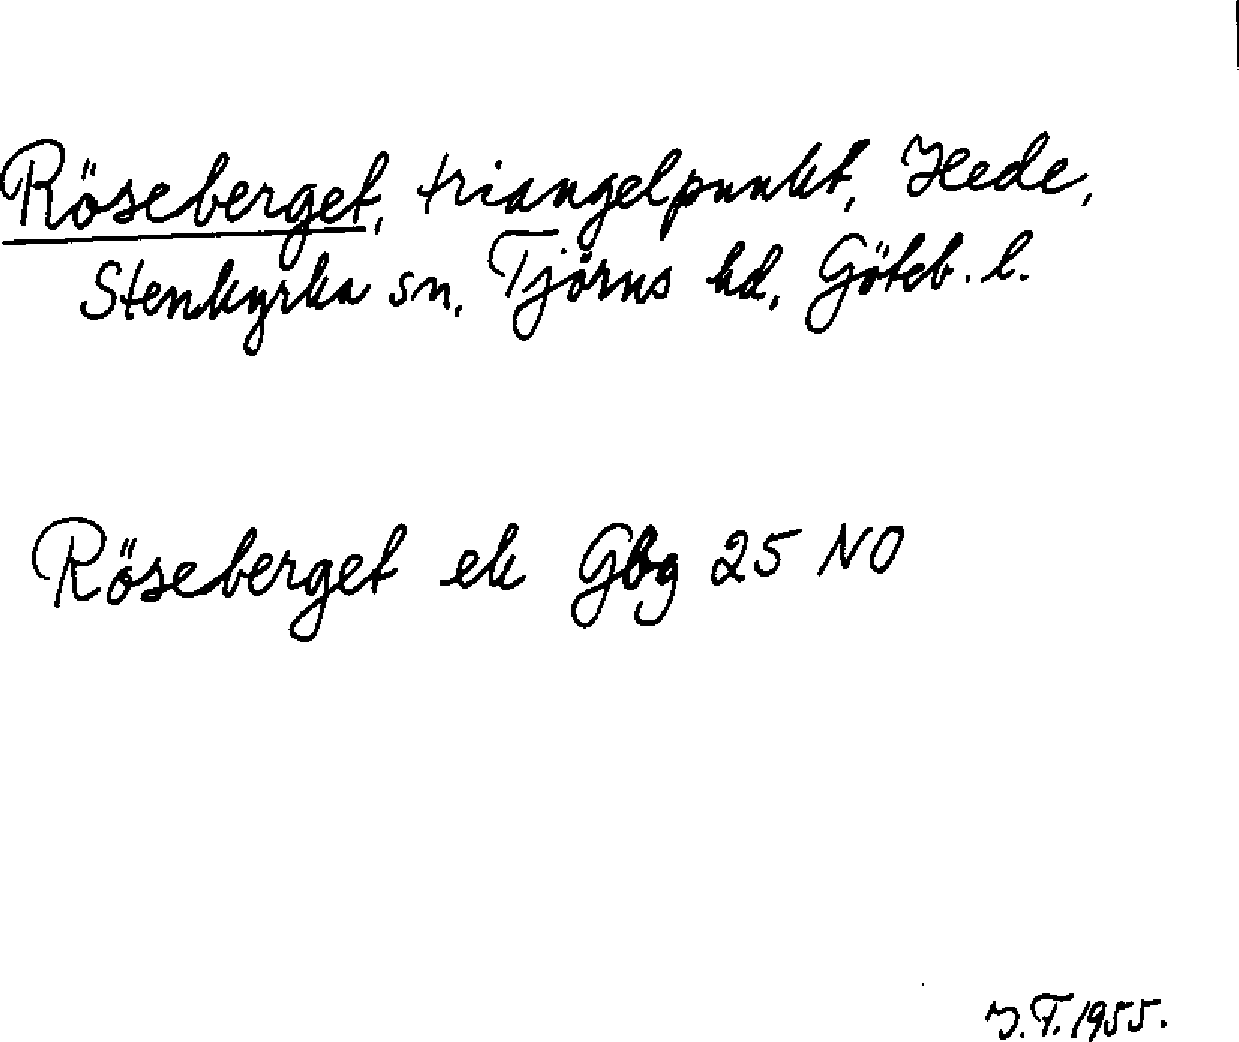 Röseberget, triangelpunkt, Hede,
Stenkyrka sn, Tjörns hd, Göteb. l.
Röseberget ek Gbg 25 NO
J.F. 1955.